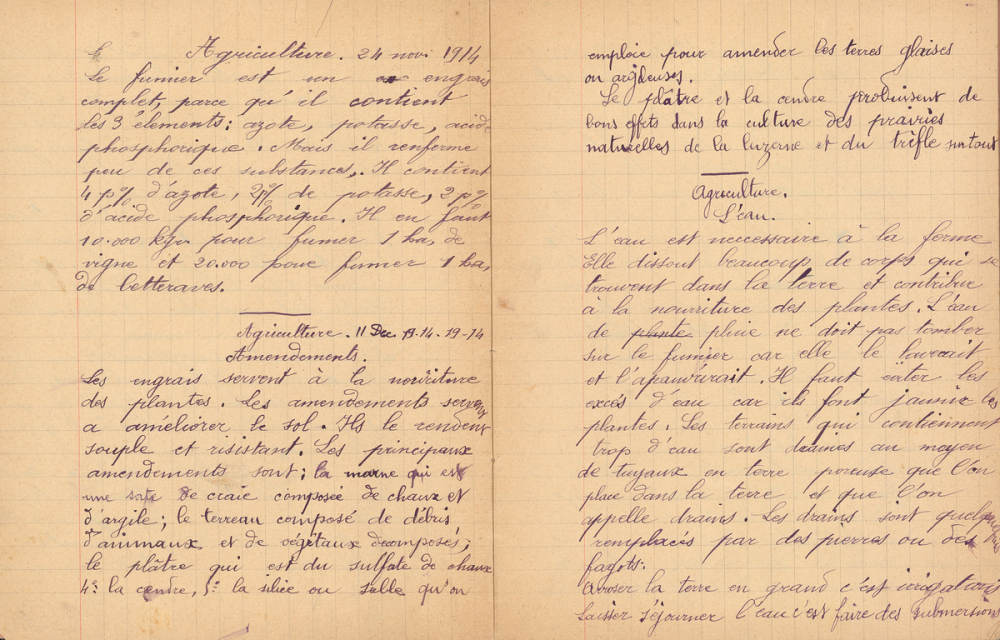 Agriculture. 24 nov. 1914
Le fumier est un engrais
complet, parce qu'il contient
les 3 éléments : azote, potasse, acide
phosphorique. Mais il renferme
peu de ces substances. Il contient
4 p% d'azote, 2 p% de potasse, 2 p%
d'acide phosphorique. Il en faut
10.000 kgr. pour fumer 1 ha, de
vigne et 20.000 pour fumer 1 ha,
de betteraves.
Agriculture. 11 Dec 19-14
Amendements.
Les engrais servent à la nourriture
des plantes. Les amendements servent
a améliorer le sol. Ils le rendent
souple et résistant. Les principaux
amendements sont ; la marne qui est
une sorte de craie composée de chaux et
d'argile ; le terreau composé de débris
d'animaux et de végétaux décomposés ;
le plâtre qui est du sulfate de chaux
4º la cendre, 5º la silice ou sable qu'on
emploie pour amender les terres glaises
ou argileuses.
Le plâtre et la cendre produisent de
bons effets dans la culture des prairies
naturelles de la luzerne et du trèfle surtout
Agriculture.
L'eau.
L'eau est necessaire à la ferme
Elle dissout beaucoup de corps qui se
trouvent dans la terre et contribue
à la nourriture des plantes. L'eau
de plante pluie ne doit pas tomber
sur le fumier car elle le laverait
et l'apauvrirait. Il faut éviter les
excés d'eau car ils font jaunir les
plantes. Les terrains qui contiennent
trop d'eau sont drainés au moyen
de tuyaux en terre poreuse que l'on
place dans la terre et que l'on
appelle drains. Les drains sont
remplacés par des pierres ou des
fagots.
Arroser la terre en grand c'est
Laisser séjourner l'eau c'est faire des submersions